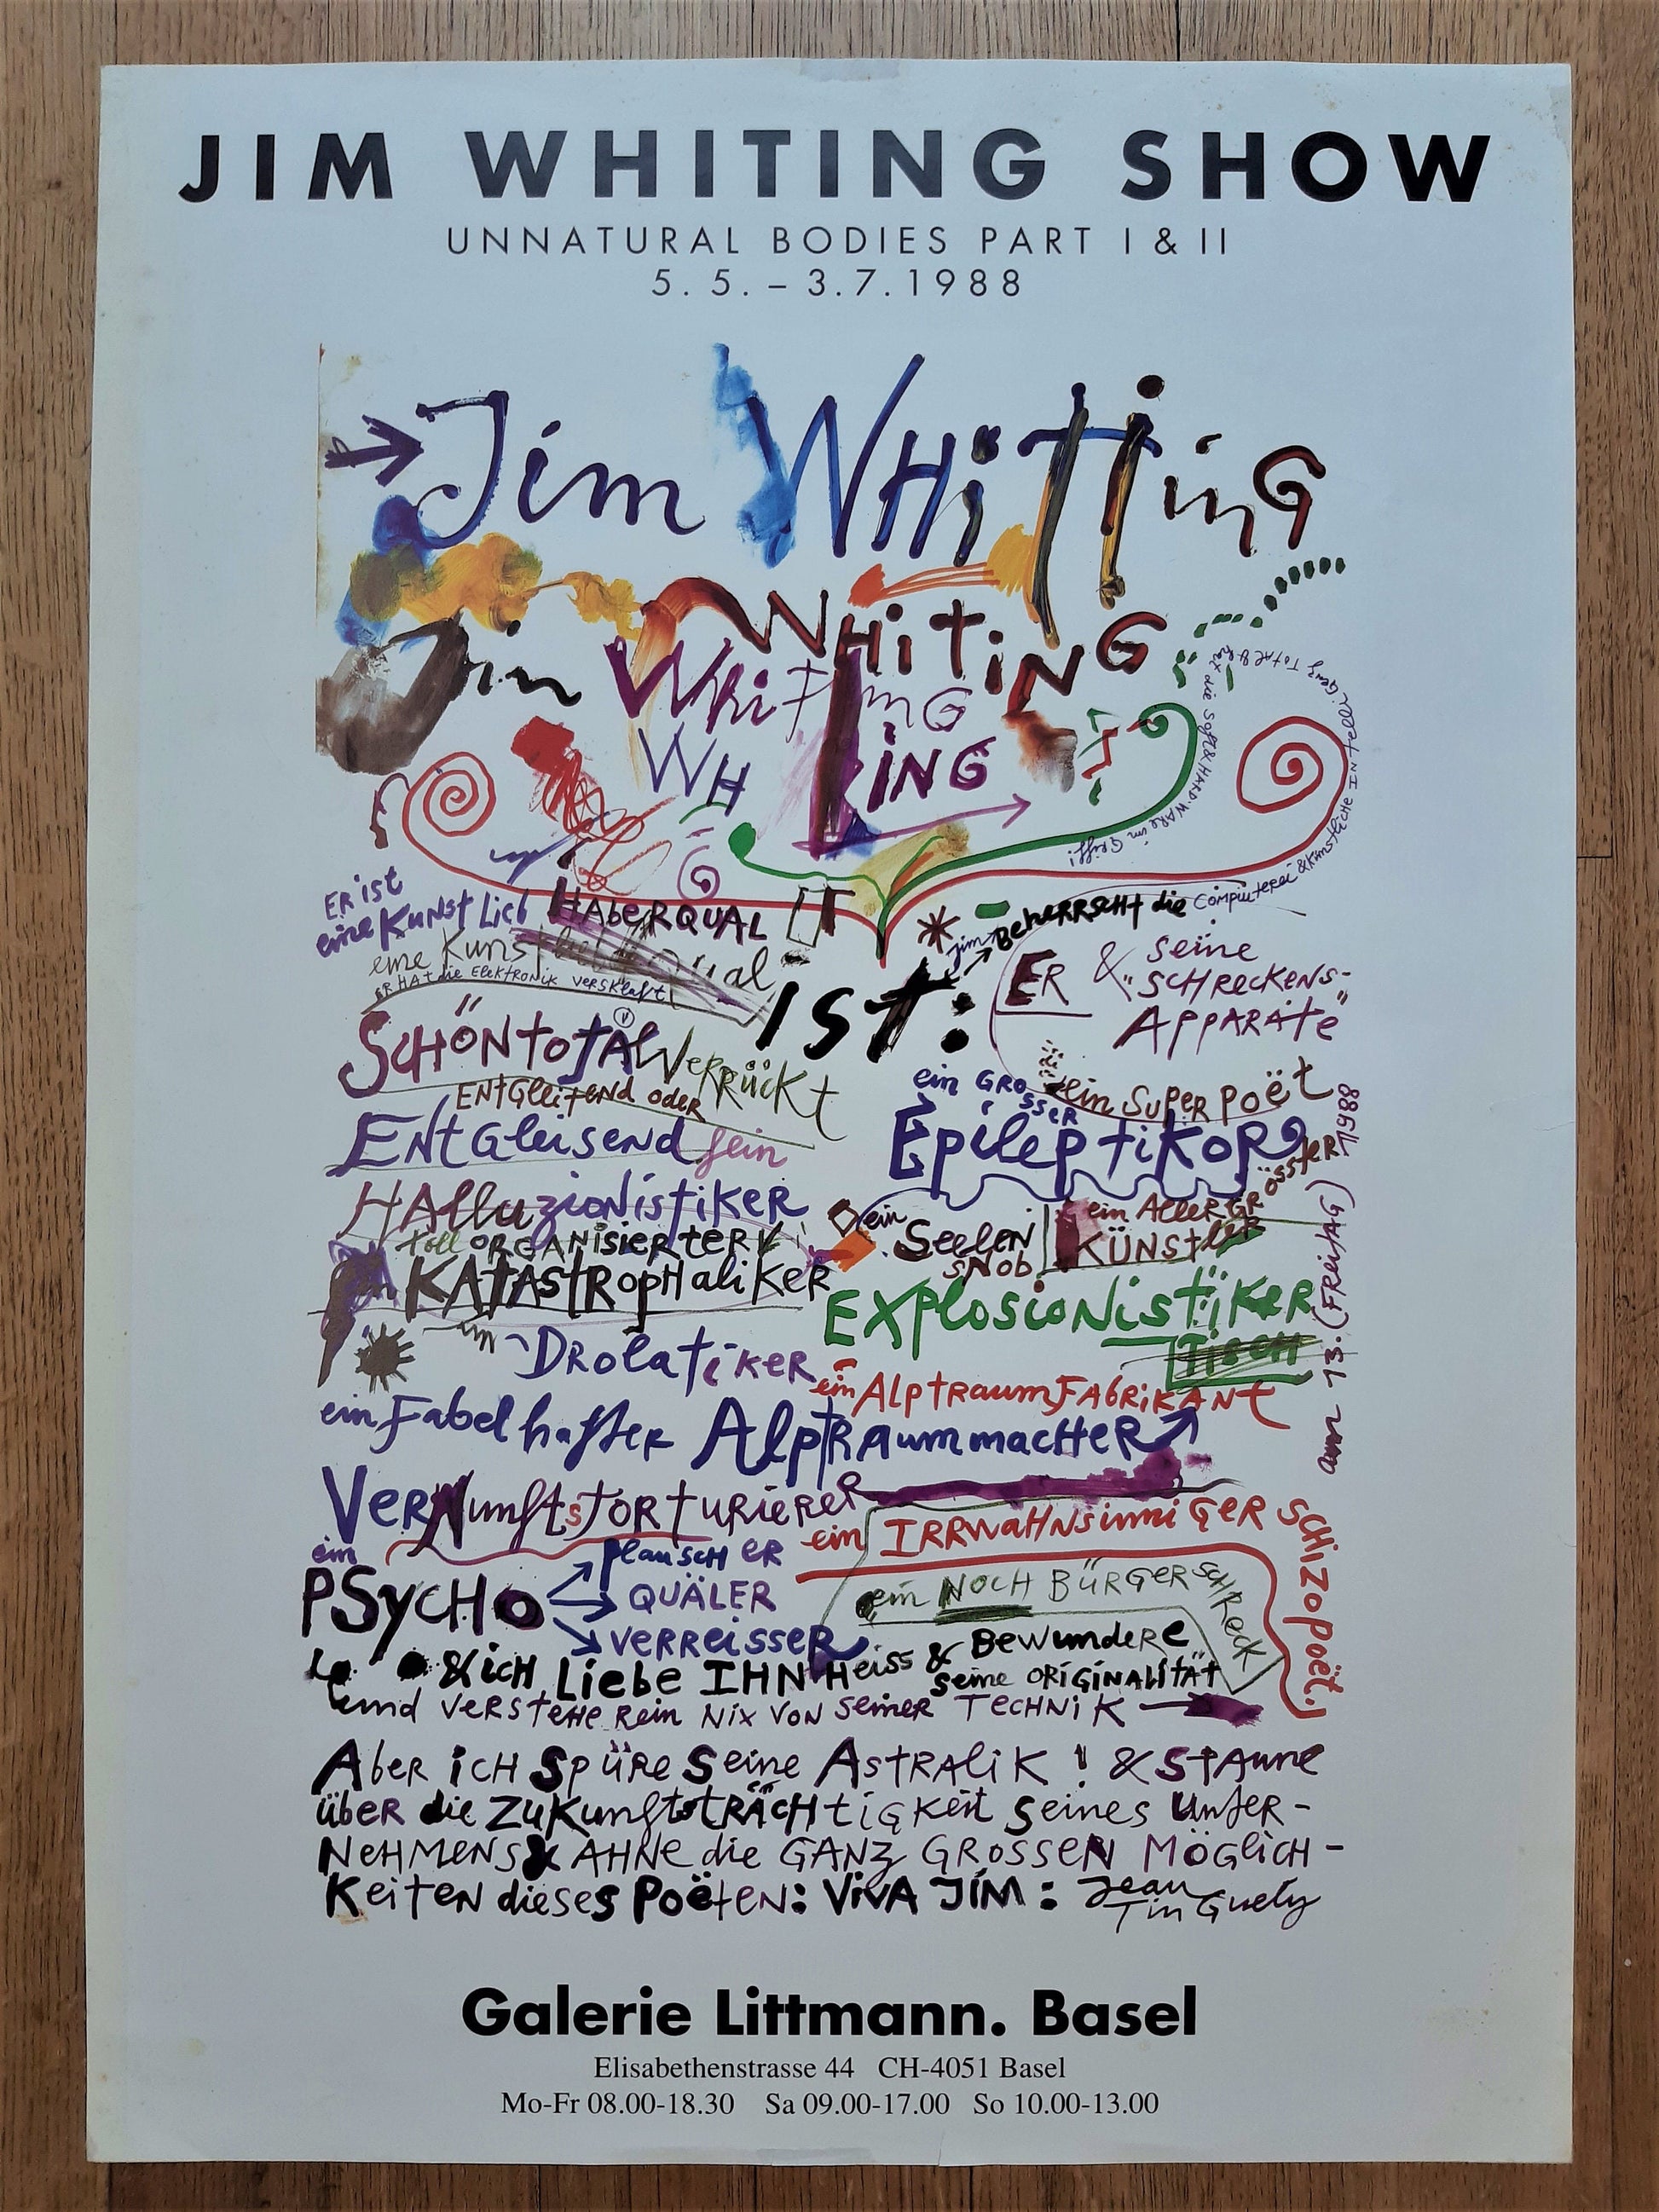 JIM WHITING SHOW
UNNATURAL BODIES PART I & II
5.5.–3.7.1988
Jim WHiTTinG
Jim WHiTiNG
WhiTinG
WH iNG
ER ist
eine KUNSt Lieb HAbeRQUAL
eine Kunst
ER HAt die ElektRoNik versklavt
ist:
Jim BeHeRRScHt die Computerei & Künstliche INtelli Genz TOTAL & hat die Soft & HARDWARE im Griff!
ER & seine
"SCHReckeNS-
APPARAte"
SCHÖN totAL VeRRückt
ENtGleitend odeR
ENtGleisend sein
ein GROSSeR
ein SUPeR Poët
EpilepTikoR
HAlluzioNistiKeR
toll ORGANisierteR
KAtAStRopHaliKeR
ein SeeleN SNob
ein ALLeRGRössteR
KÜNStleR
EXPlosioNistiKeR
TiSCH
DRolatiKeR
ein AlptRaumFAbRiKANt
ein FabelhafteR AlptRAummacHeR
am 13. (FReitAG) 1988
VeRNunftsToRtuRieReR
ein IRRWaHNSinniGeR SCHiZoPoët.
ein PSycHo
PlauscH eR
QUÄLeR
VeRReisseR
ein NOCH BÜRGeR SCHReck
& icH Liebe IHN Heiss & BewundeRe
seine ORiGiNAlitÄt
und VeRSteHe Rein Nix VoN SeineR TecHNiK
AbeR icH SpüRe Seine AstRALiK! & StAune
übeR die ZuKunftstRÄcHtiGKeit Seines UnteR-
NeHMeNS & AHNe die GANz GRosseN MöGLicH-
KeiteN dieses PoëteN: ViVA JiM: Jean
TinGuely
Galerie Littmann. Basel
Elisabethenstrasse 44 CH-4051 Basel
Mo-Fr 08.00-18.30 Sa 09.00-17.00 So 10.00-13.00